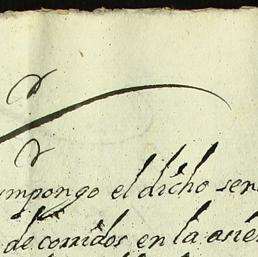 impongo el dicho
de corridos en la